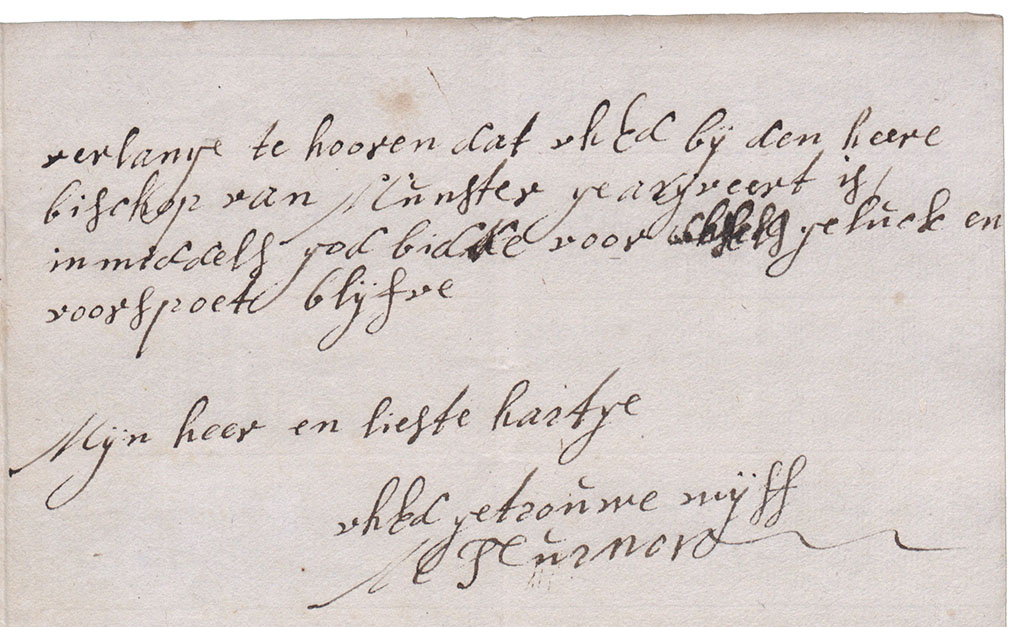 verlange te hooren dat uhEd bij den heere
bischop van Munster gearyveert is,
in middels god bidde voor geluck en
voorspoet blijfve
Mijn heer en liefste hartye
uhEd getrouwe wijff
M